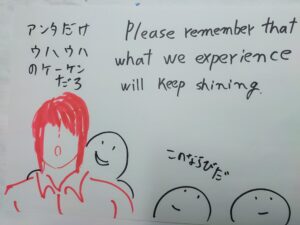 アンタだけ
ウハウハ
のケーケン
だろ
Please remember that
what we experience
will keep shining.
このならびだ